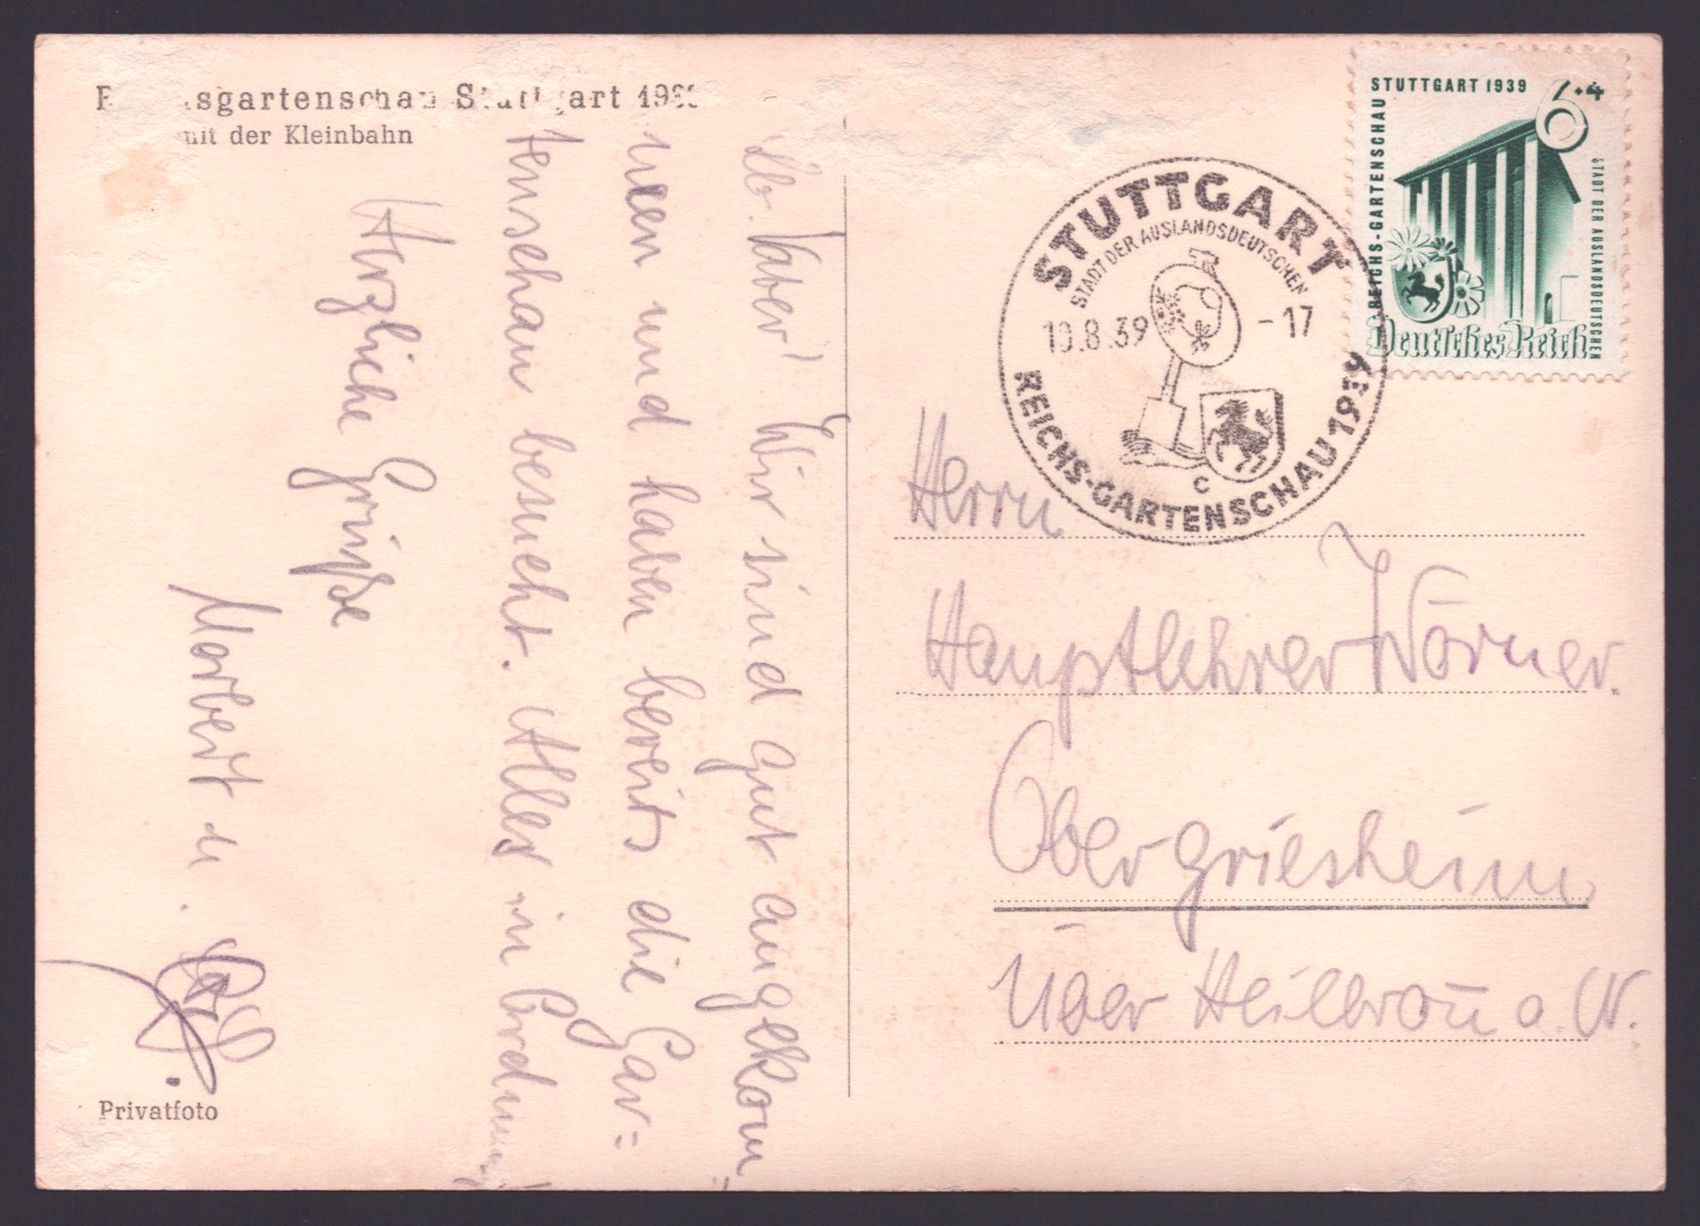 sgartenschau Stuttgart 1939
mit der Kleinbahn
Lb. Vater! Wir sind gut angekom
men und haben bereits die Gar=
tenschau besucht. Alles in Ordnung!
Herzliche Grüße
Norbert u.
Privatfoto
STUTTGART
STADT DER AUSLANDSDEUTSCHEN
10.8.39 -17
C
REICHS-GARTENSCHAU 1939
STUTTGART 1939
6+4
REICHS-GARTENSCHAU
STADT DER AUSLANDSDEUTSCHEN
Deutsches Reich
Herrn
Hauptlehrer Wörner.
Obergriesheim
über Heilbron̄ a. N.